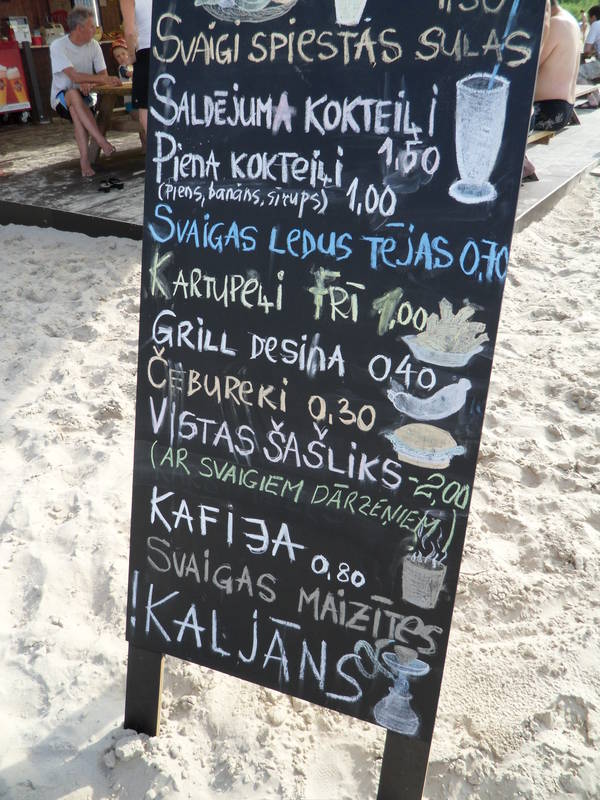 1,50
SVAIGI SPIESTAS SULAS
SALDĒJUMA KOKTEIĻI
1,50
PIENA KOKTEIĻI
(PIENS, BANĀNS, SĪRUPS) 1,00
SVAIGAS LEDUS TĒJAS 0,70
KARTUPEĻI FRĪ 1,00
GRILL DESIŅA 040
ČEBUREKI 0,30
VISTAS ŠAŠLIKS-2,00
(AR SVAIGIEM DĀRZEŅIEM)
KAFIJA 0,80
SVAIGAS MAIZĪTES
!KALJĀNS